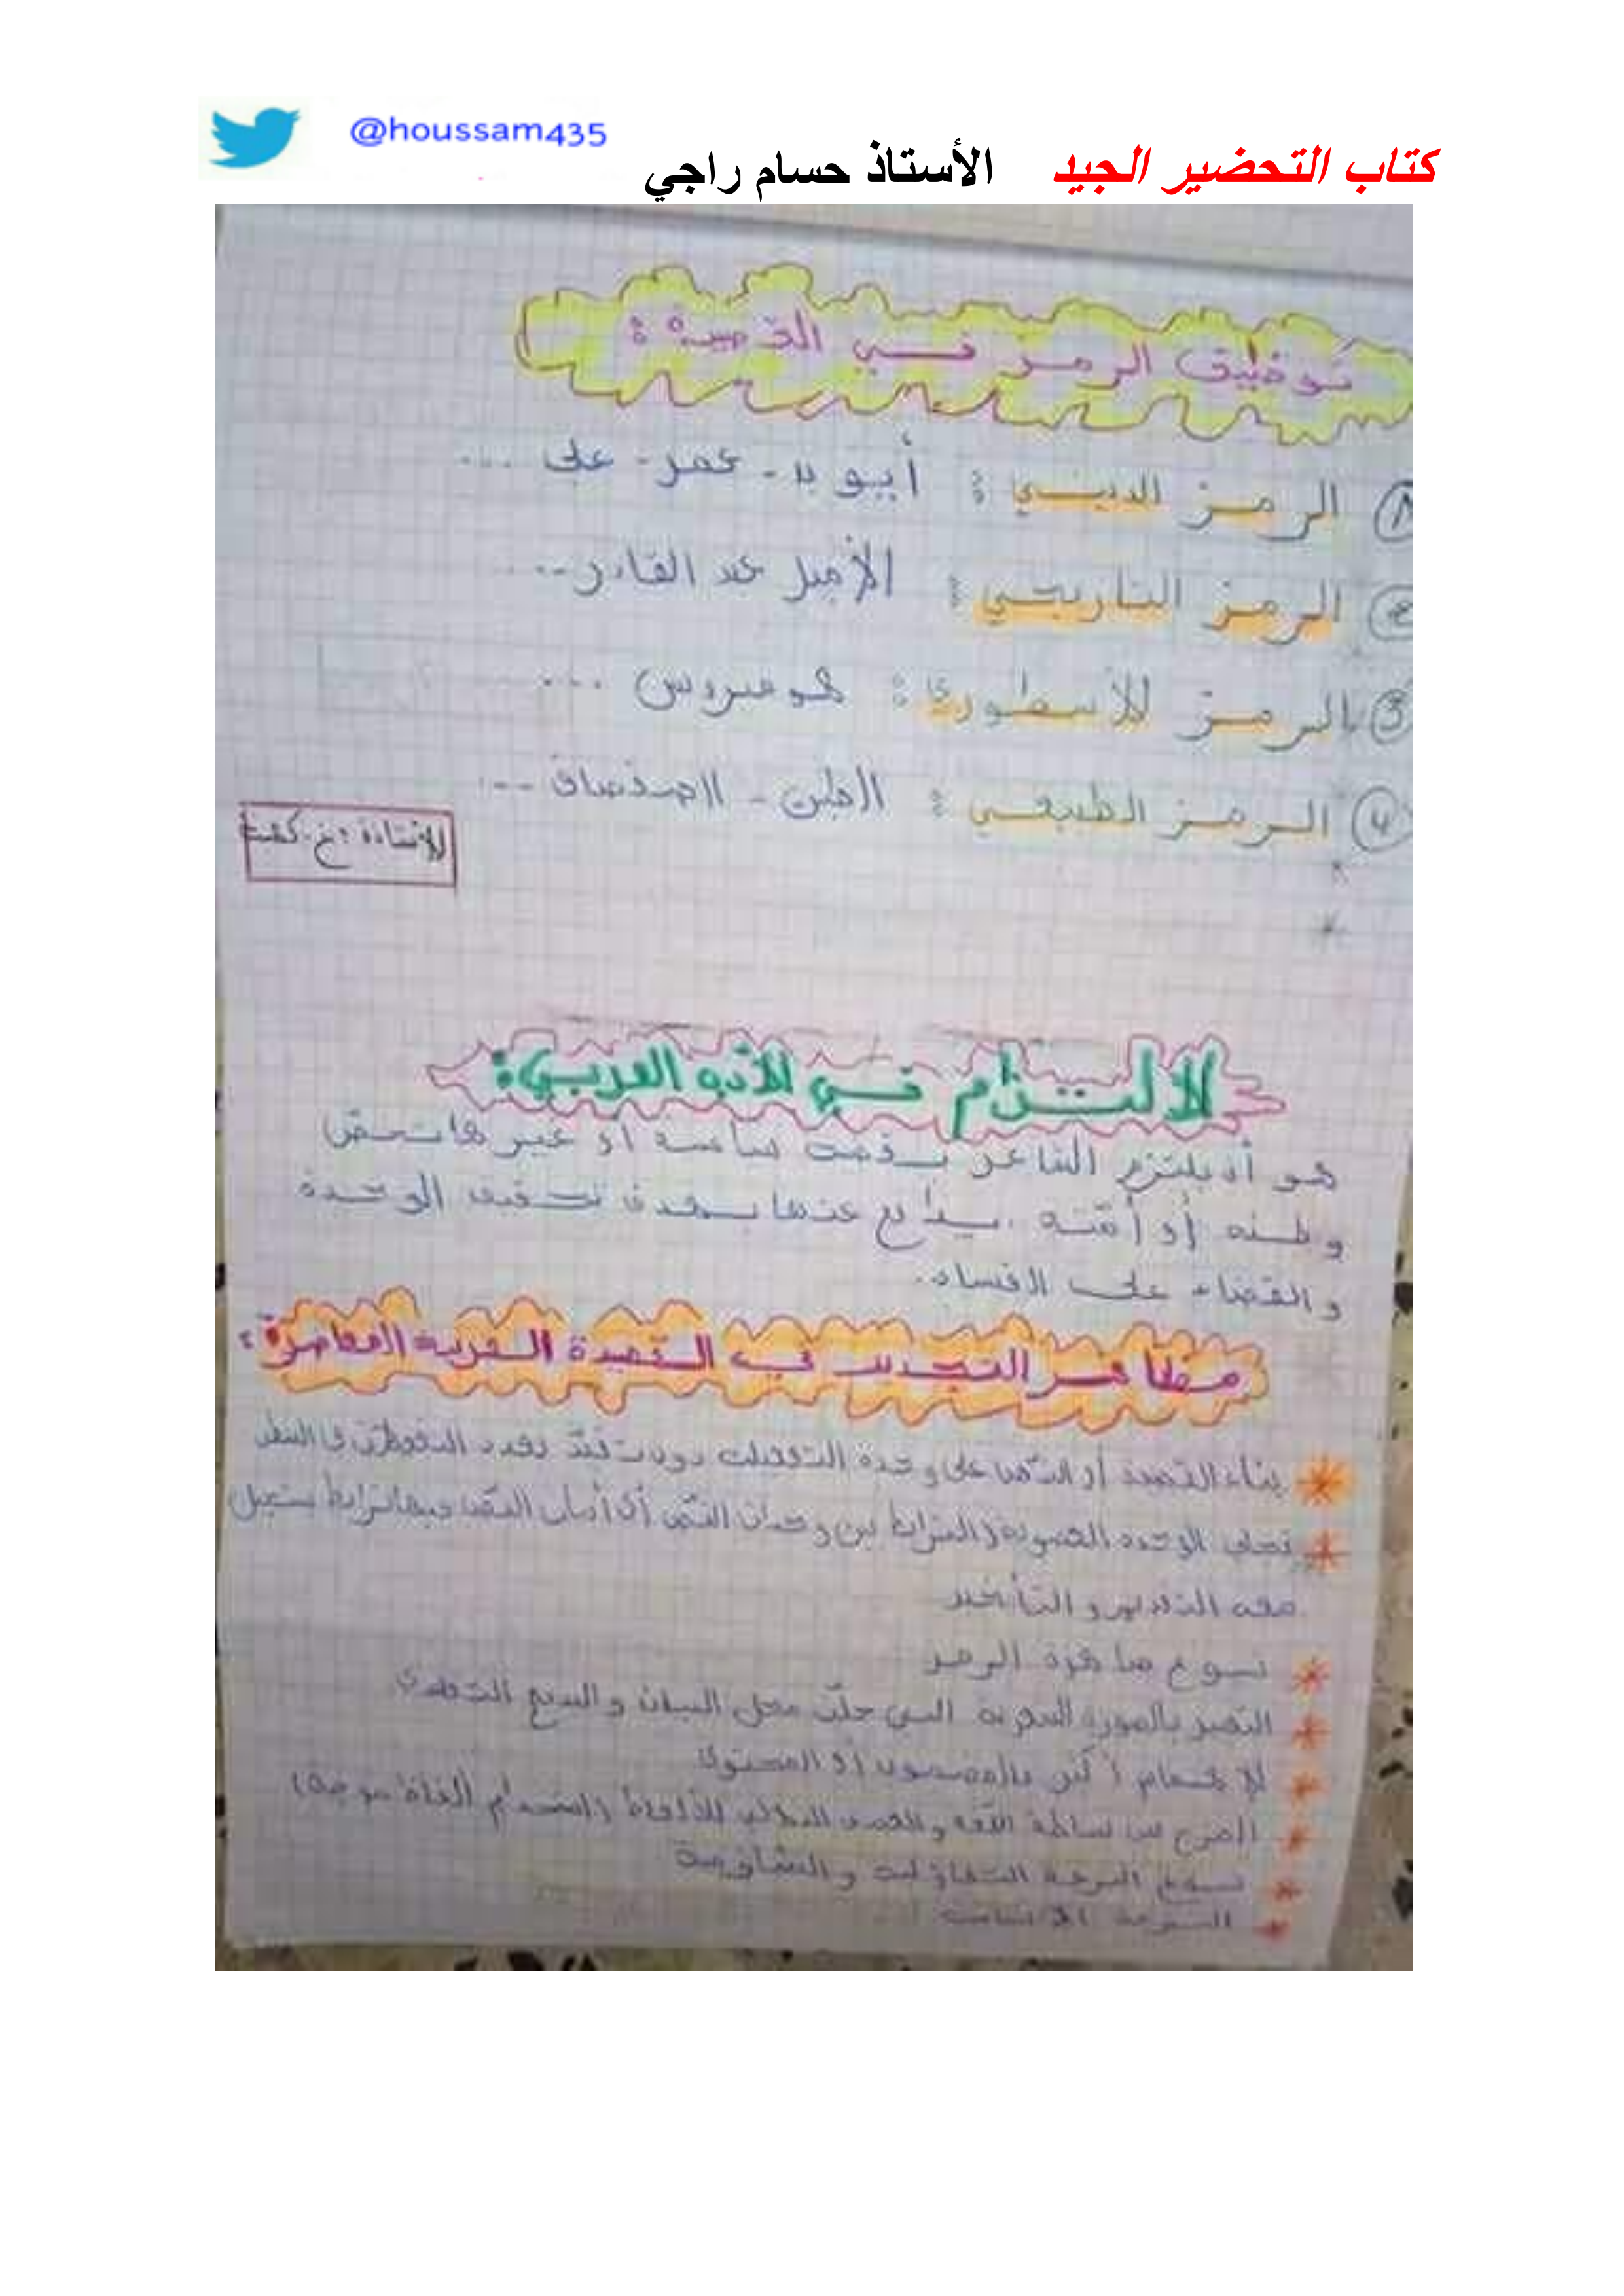 @houssam435
كتاب التحضير الجيد الأستاذ حسام راجي
توظيف الرمز في القصيدة :
1 الرمز الديني : أيوب - عمر - علي ...
2 الرمز التاريخي : الأمير عبد القادر ...
3 الرمز الأسطوري : هوميروس ...
4 الرمز الطبيعي : الطين - الصفصاف ...
الأستاذة : خ.
الالتزام في الأدب العربي :
هو أن يلتزم الشاعر بقضية سياسية أو غيرها تخص
وطنه أو أمته . يدافع عنها بهدف تحقيق الوحدة
والقضاء على الفساد.
مظاهر التجديد في القصيدة العربية المعاصرة :
بناء القصيدة أو النص على وحدة التفعيلة دون
الوحدة العضوية الترابط بين وحدات النص أي أبيات القصيدة بينها ترابط يستحيل
معه التقديم و التأخير
شيوع ظاهرة الرمز
التعبير بالصورة الشعرية التي حلّت محل البيان و البديع التقليدي
الاهتمام أكثر بالمضمون أو المحتوى
المزج بين بساطة اللغة والعمق الدلالي للألفاظ (استخدام ألفاظ موحية)
شيوع النزعة التفاؤلية و التشاؤمية
النزعة الإنسانية